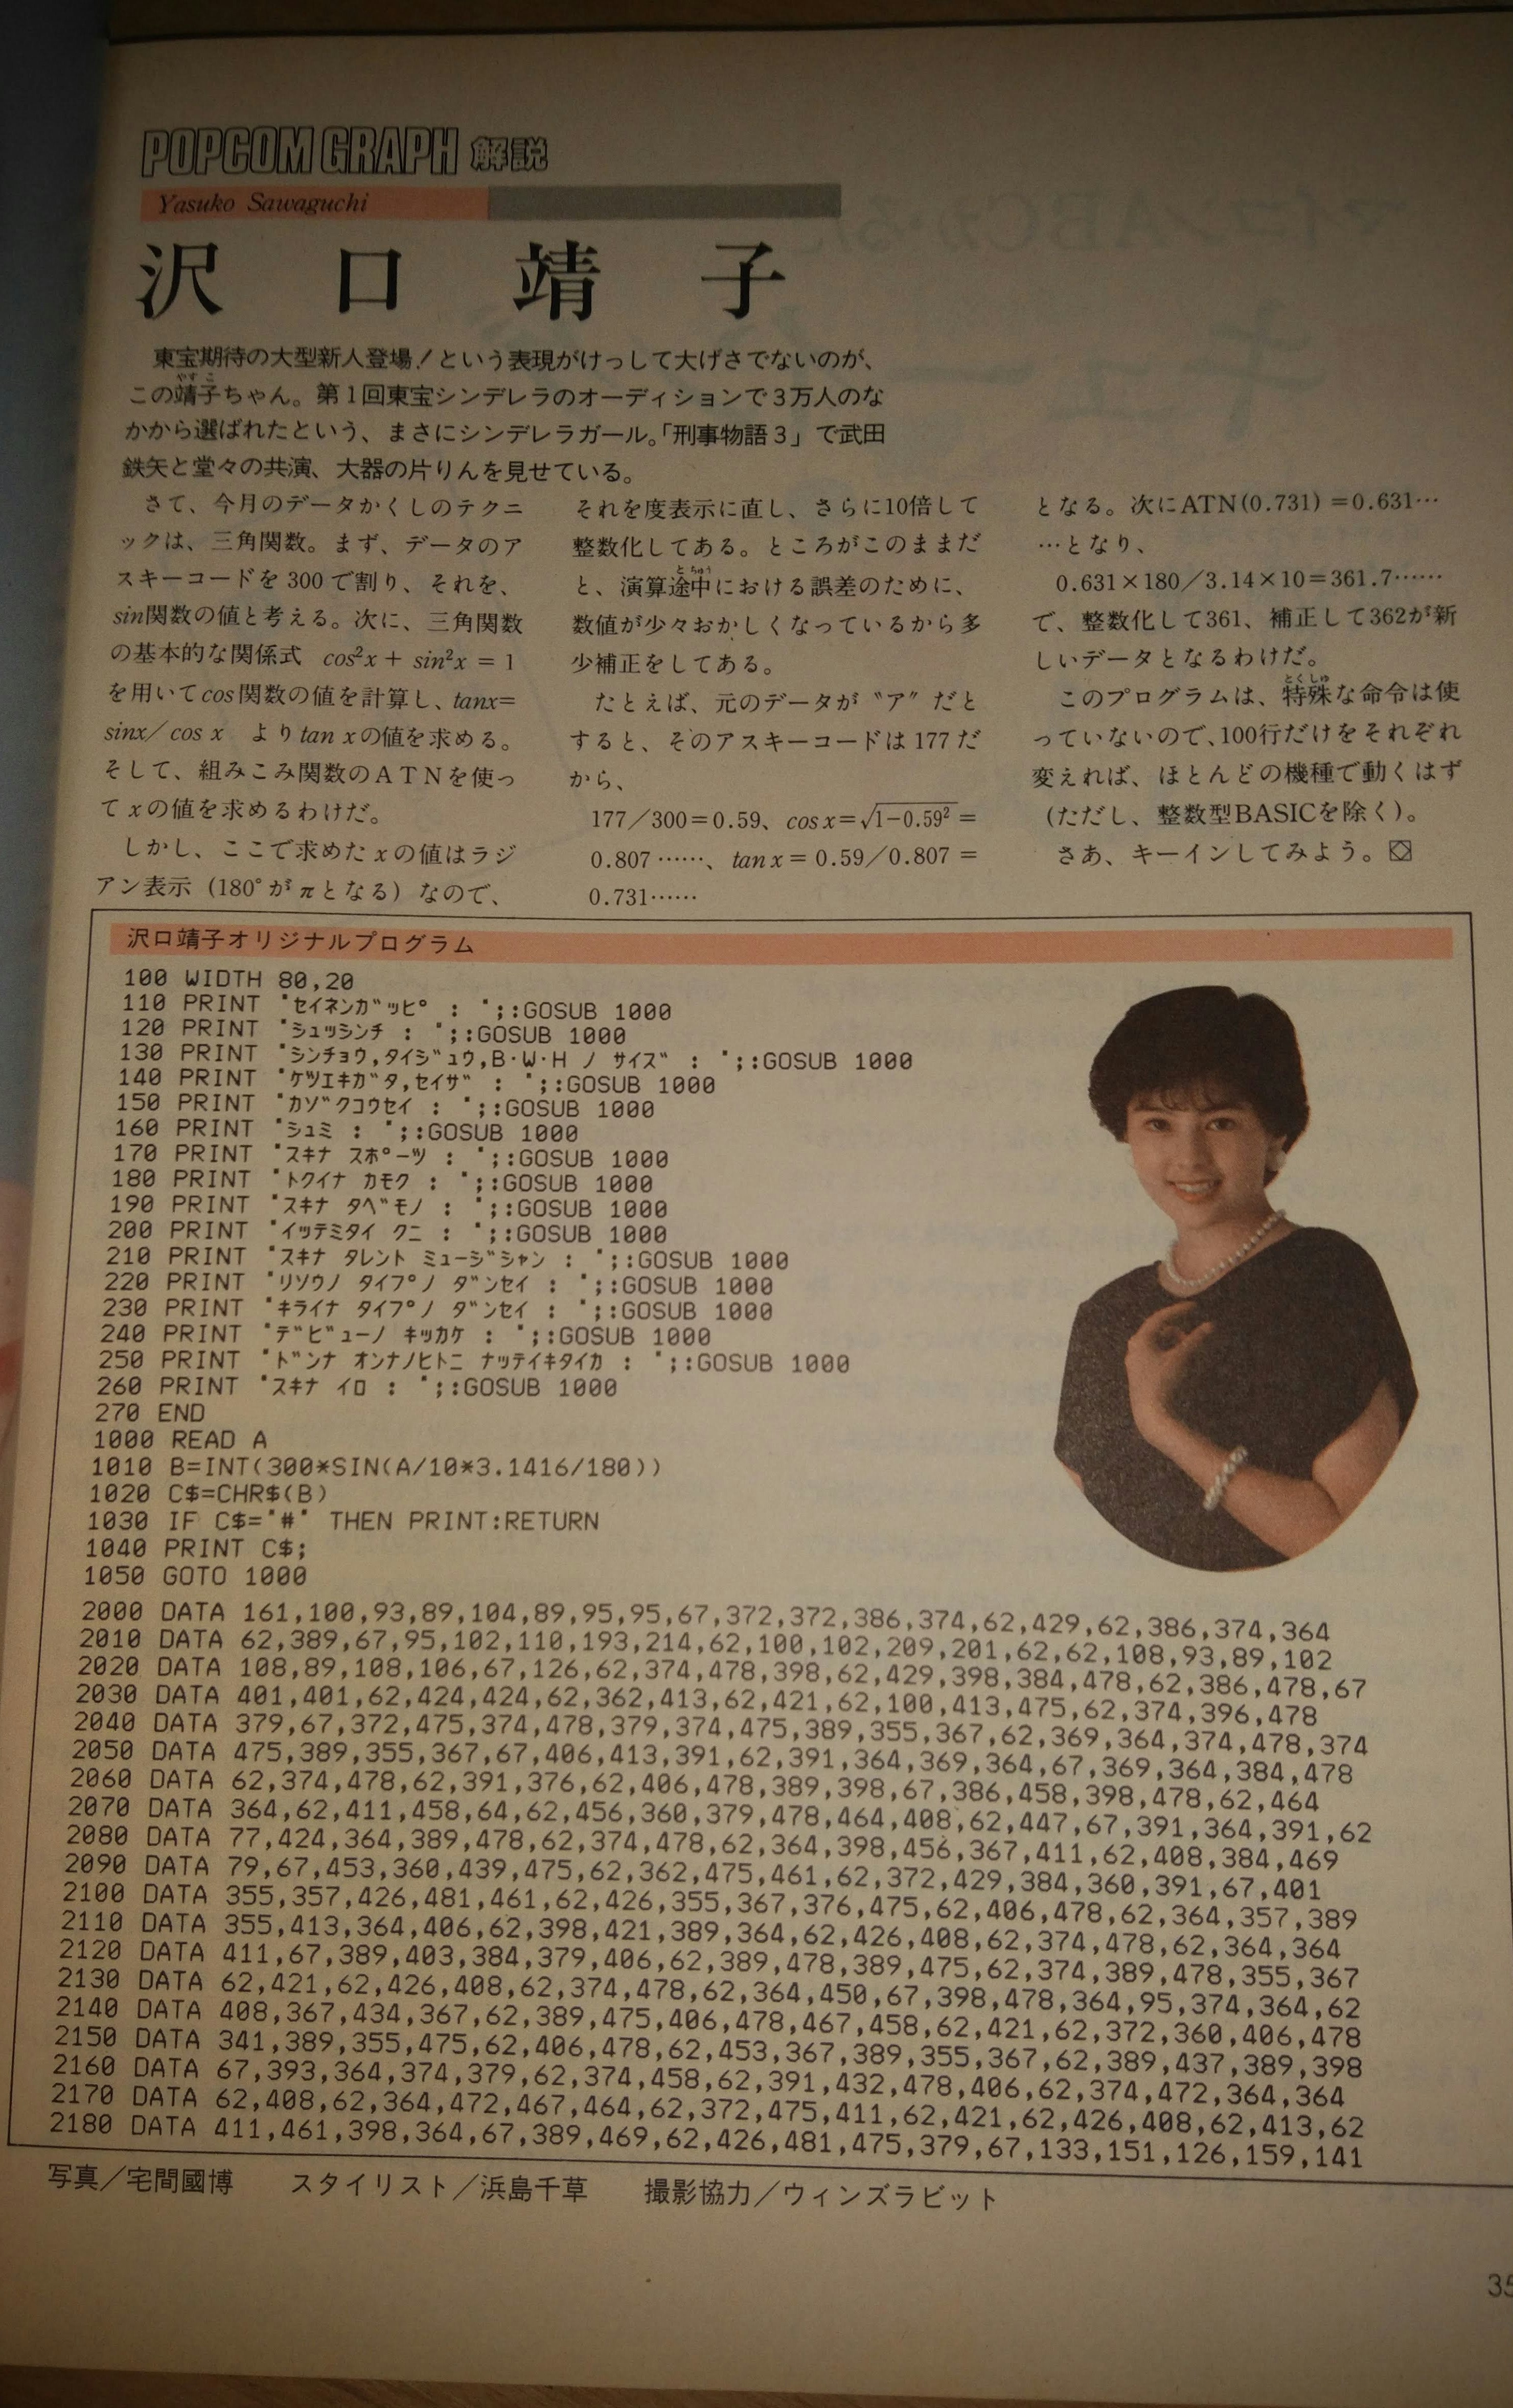 POPCOM GRAPH 解説
Yasuko Sawaguchi
沢口靖子
東宝期待の大型新人登場！という表現がけっして大げさでないのが、
この靖子ちゃん。第1回東宝シンデレラのオーディションで3万人のな
かから選ばれたという、まさにシンデレラガール。「刑事物語3」で武田
鉄矢と堂々の共演、大器の片りんを見せている。
さて、今月のデータかくしのテクニ
ックは、三角関数。まず、データのア
スキーコードを300で割り、それを、
sin関数の値と考える。次に、三角関数
の基本的な関係式 cos²x + sin²x = 1
を用いてcos関数の値を計算し、tanx=
sinx/cos x よりtan xの値を求める。
そして、組みこみ関数のATNを使っ
てxの値を求めるわけだ。
しかし、ここで求めたxの値はラジ
アン表示（180°がπとなる）なので、
それを度表示に直し、さらに10倍して
整数化してある。ところがこのままだ
と、演算途中における誤差のために、
数値が少々おかしくなっているから多
少補正をしてある。
たとえば、元のデータが〝ア〟だと
すると、そのアスキーコードは177だ
から、
177／300＝0.59、cos x＝√1－0.59² ＝
0.807……、tan x＝0.59／0.807＝
0.731……
となる。次にATN(0.731)＝0.631…
…となり、
0.631×180／3.14×10＝361.7……
で、整数化して361、補正して362が新
しいデータとなるわけだ。
このプログラムは、特殊な命令は使
っていないので、100行だけをそれぞれ
変えれば、ほとんどの機種で動くはず
（ただし、整数型BASICを除く）。
さあ、キーインしてみよう。
沢口靖子オリジナルプログラム
100 WIDTH 80,20
110 PRINT "セイネンガッピ : ";:GOSUB 1000
120 PRINT "シュッシンチ : ";:GOSUB 1000
130 PRINT "シンチョウ,タイジュウ,B・W・H ノ サイズ : ";:GOSUB 1000
140 PRINT "ケツエキガタ,セイザ : ";:GOSUB 1000
150 PRINT "カゾクコウセイ : ";:GOSUB 1000
160 PRINT "シュミ : ";:GOSUB 1000
170 PRINT "スキナ スポーツ : ";:GOSUB 1000
180 PRINT "トクイナ カモク : ";:GOSUB 1000
190 PRINT "スキナ タベモノ : ";:GOSUB 1000
200 PRINT "イッテミタイ クニ : ";:GOSUB 1000
210 PRINT "スキナ タレント ミュージシャン : ";:GOSUB 1000
220 PRINT "リソウノ タイプノ ダンセイ : ";:GOSUB 1000
230 PRINT "キライナ タイプノ ダンセイ : ";:GOSUB 1000
240 PRINT "デビューノ キッカケ : ";:GOSUB 1000
250 PRINT "ドンナ オンナノヒトニ ナッテイキタイカ : ";:GOSUB 1000
260 PRINT "スキナ イロ : ";:GOSUB 1000
270 END
1000 READ A
1010 B=INT(300*SIN(A/10*3.1416/180))
1020 C$=CHR$(B)
1030 IF C$="#" THEN PRINT:RETURN
1040 PRINT C$;
1050 GOTO 1000
2000 DATA 161,100,93,89,104,89,95,95,67,372,372,386,374,62,429,62,386,374,364
2010 DATA 62,389,67,95,102,110,193,214,62,100,102,209,201,62,62,108,93,89,102
2020 DATA 108,89,108,106,67,126,62,374,478,398,62,429,398,384,478,62,386,478,67
2030 DATA 401,401,62,424,424,62,362,413,62,421,62,100,413,475,62,374,396,478
2040 DATA 379,67,372,475,374,478,379,374,475,389,355,367,62,369,364,374,478,374
2050 DATA 475,389,355,367,67,406,413,391,62,391,364,369,364,67,369,364,384,478
2060 DATA 62,374,478,62,391,376,62,406,478,389,398,67,386,458,398,478,62,464
2070 DATA 364,62,411,458,64,62,456,360,379,478,464,408,62,447,67,391,364,391,62
2080 DATA 77,424,364,389,478,62,374,478,62,364,398,456,367,411,62,408,384,469
2090 DATA 79,67,453,360,439,475,62,362,475,461,62,372,429,384,360,391,67,401
2100 DATA 355,357,426,481,461,62,426,355,367,376,475,62,406,478,62,364,357,389
2110 DATA 355,413,364,406,62,398,421,389,364,62,426,408,62,374,478,62,364,364
2120 DATA 411,67,389,403,384,379,406,62,389,478,389,475,62,374,389,478,355,367
2130 DATA 62,421,62,426,408,62,374,478,62,364,450,67,398,478,364,95,374,364,62
2140 DATA 408,367,434,367,62,389,475,406,478,467,458,62,421,62,372,360,406,478
2150 DATA 341,389,355,475,62,406,478,62,453,367,389,355,367,62,389,437,389,398
2160 DATA 67,393,364,374,379,62,374,458,62,391,432,478,406,62,374,472,364,364
2170 DATA 62,408,62,364,472,467,464,62,372,475,411,62,421,62,426,408,62,413,62
2180 DATA 411,461,398,364,67,389,469,62,426,481,475,379,67,133,151,126,159,141
写真／宅間國博　スタイリスト／浜島千草　撮影協力／ウィンズラビット
35